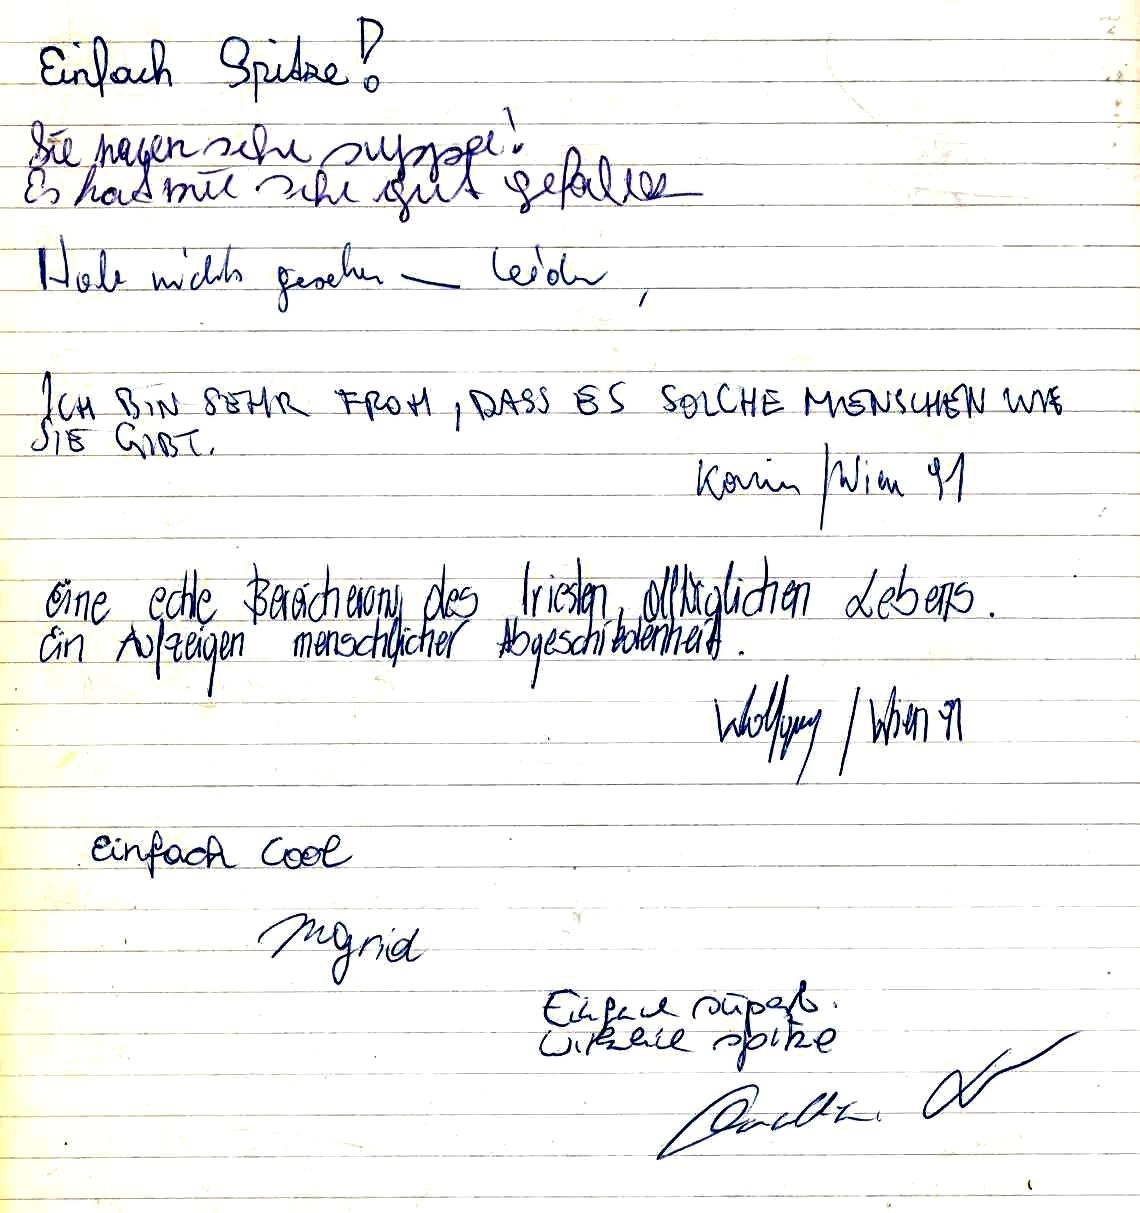 Einfach Spitze!
Sie sehr
Es hat mir sehr gut gefallen
Habe nichts gesehen — leider,
ICH BIN SEHR FROH, DASS ES SOLCHE MENSCHEN WIE
SIE GIBT.
Karin / Wien 91
eine echte Bereicherung des tristen, alltäglichen Lebens.
Ein Aufzeigen menschlicher
Wolfgang / Wien 91
Einfach Cool
Ingrid
Einfach süperb.
Wirklich spitze